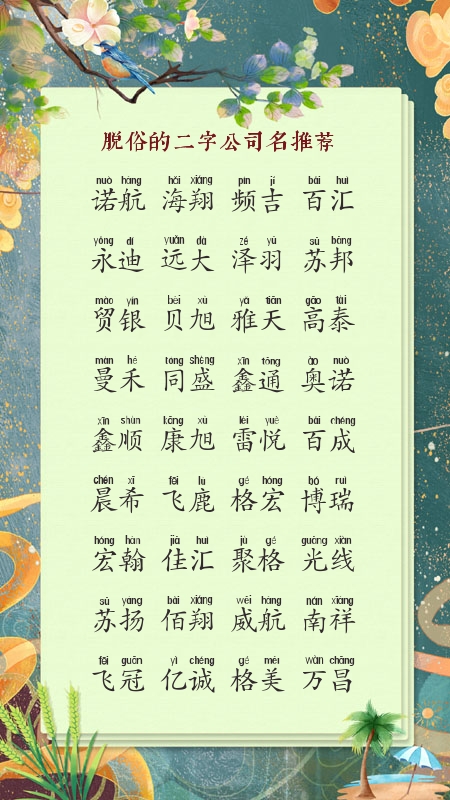 脱俗的二字公司名推荐
nuò háng hǎi xiáng pín jí bǎi huì
诺航 海翔 频吉 百汇
yǒng dí yuǎn dà zé yǔ sū bāng
永迪 远大 泽羽 苏邦
mào yín bèi xù yǎ tiān gāo tài
贸银 贝旭 雅天 高泰
màn hé tóng shèng xīn tōng ào nuò
曼禾 同盛 鑫通 奥诺
xīn shùn kāng xù léi yuè bǎi chéng
鑫顺 康旭 雷悦 百成
chén xī fēi lù gé hóng bó ruì
晨希 飞鹿 格宏 博瑞
hóng hàn jiā huì jù gé guāng xiàn
宏翰 佳汇 聚格 光线
sū yáng bǎi xiáng wēi háng nán xiáng
苏扬 佰翔 威航 南祥
fēi guān yì chéng gé měi wàn chāng
飞冠 亿诚 格美 万昌